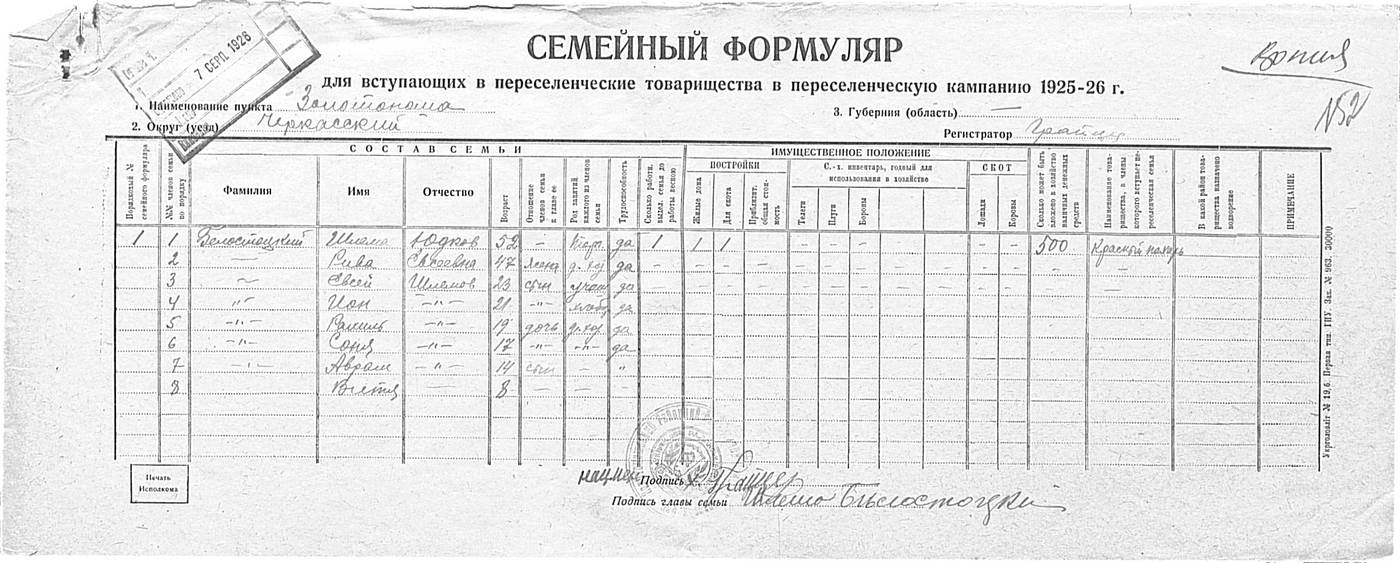 7 СЕРП. 1926
СЕМЕЙНЫЙ ФОРМУЛЯР
Копия
для вступающих в переселенческие товарищества в переселенческую кампанию 1925-26 г.
№2
1. Наименование пункта Золотоноша
3. Губерния (область) —
2. Округ (уезд) Черкасский
Регистратор
СОСТАВ СЕМЬИ
ИМУЩЕСТВЕННОЕ ПОЛОЖЕНИЕ
Порядковый № семейного формуляра
№№ членов семьи по порядку
Фамилия
Имя
Отчество
Возраст
Отношение членов семьи к главе ее
Род занятий каждого из членов семьи
Трудоспособность
Сколько работн. выдел. семья до работы весною
ПОСТРОЙКИ
Жилые дома
Для скота
Приблизит. общая стоимость
С.-х. инвентарь, годный для использования в хозяйстве
Телеги
Плуги
Бороны
СКОТ
Лошади
Коровы
Сколько может быть вложено в хозяйство наличных денежных средств
Наименование товарищества, в члены которого вступает переселенческая семья
В какой район товарищества назначено водворение
ПРИМЕЧАНИЕ
1 1 Белостоцкий Шлема Юдков 52 — торг. да 1 1 1 — — — — — 500 Красный пахарь
2 — Рива Евсеевна 47 жена д. хоз да — — — — — — — — — —
3 — Евсей Шлемов 23 сын да — — — — — — — — — —
4 -"- Ион -"- 21 -"- да
5 -"- Рахиль -"- 19 дочь д. хоз. да
6 -"- Соня -"- 17 -"- -"- да
7 -"- Аврам -"- 14 сын — "
8 — 8 — —
Печать Исполкома
Подпись
Подпись главы семьи Шлемо Бѣлостоцкий
Укрголовліт № 19,6. Перва тип. ГПУ. Зак. № 963. 30000